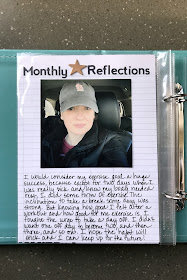 Monthly Reflections
I would consider my exercise goal a huge
success, because except for two days when I
was really sick and knew my body needed
rest, I did some form of exercise. The
inclination to take a break some days was
strong. But knowing how good I felt after a
workout and how good for me exercise is, I
fought the urge to take a day off. I didn't
want one off day to become two, and then
three, and so on. I hope the habit will
once and I can keep up for the future!